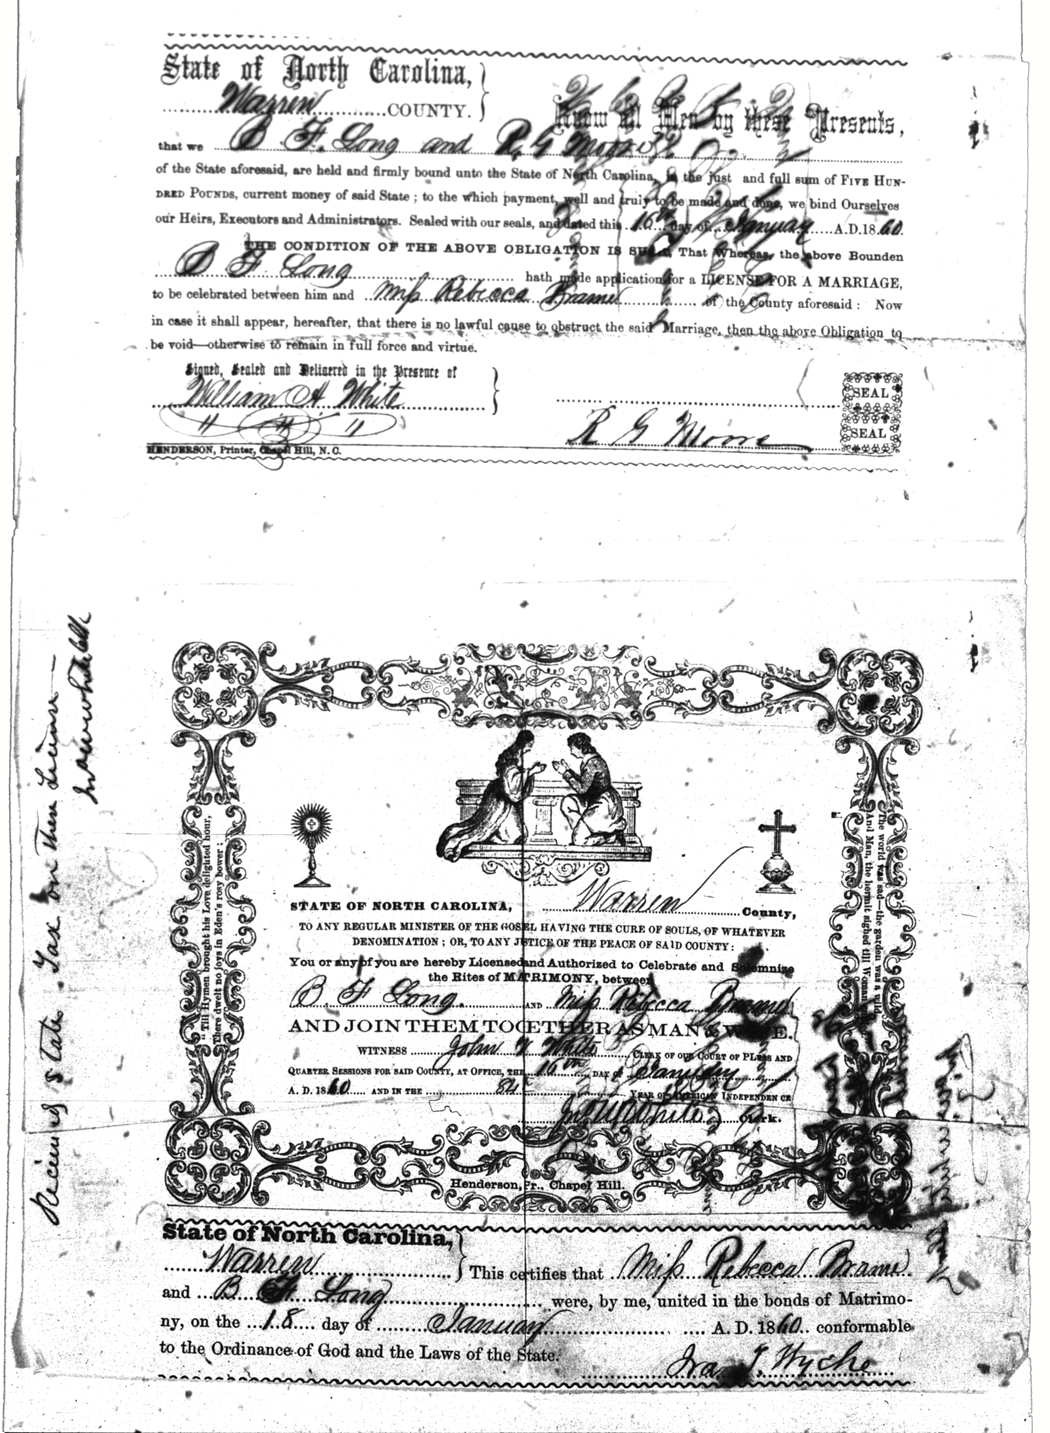 State of North Carolina,
Warren COUNTY.
Know All Men by these Presents,
that we B F. Long and R, G Moore
of the State aforesaid, are held and firmly bound unto the State of North Carolina, in the just and full sum of FIVE HUN-
DRED POUNDS, current money of said State; to the which payment, well and truly to be made and done, we bind Ourselves
our Heirs, Executors and Administrators. Sealed with our seals, and dated this 16th day of January A.D. 1860.
THE CONDITION OF THE ABOVE OBLIGATION IS SUCH, That Whereas, the above Bounden
B F Long hath made application for a LICENSE FOR A MARRIAGE,
to be celebrated between him and Miss Rebecca Brame of the County aforesaid: Now
in case it shall appear, hereafter, that there is no lawful cause to obstruct the said Marriage, then the above Obligation to
be void—otherwise to remain in full force and virtue.
Signed, Sealed and Delivered in the Presence of
William A White
SEAL
R G Moore
SEAL
HENDERSON, Printer, Chapel Hill, N. C.
Received State Tax on then License—
"Till Hymen brought his Love delighted hour,
There dwelt no joys in Eden's rosy bower;
The world was sad—the garden was a wild
And Man, the hermit sighed till Woman
STATE OF NORTH CAROLINA, Warren County,
TO ANY REGULAR MINISTER OF THE GOSPEL HAVING THE CURE OF SOULS, OF WHATEVER
DENOMINATION; OR, TO ANY JUSTICE OF THE PEACE OF SAID COUNTY:
You or any of you are hereby Licensed and Authorized to Celebrate and Solemnize
the Rites of MATRIMONY, between
B. F Long. AND Miss Rebecca Brame
AND JOIN THEM TOGETHER AS MAN & WIFE.
WITNESS John W White CLERK OF OUR COURT OF PLEAS AND
QUARTER SESSIONS FOR SAID COUNTY, AT OFFICE, THE 16th DAY OF January
A. D. 1860 AND IN THE 84 YEAR OF AMERICAN INDEPENDENCE
Jno W White Clerk.
Henderson, Pr., Chapel Hill.
State of North Carolina,
Warren This certifies that Miss Rebecca Brame
and B F Long were, by me, united in the bonds of Matrimo-
ny, on the 18 day of January A. D. 1860. conformable
to the Ordinance of God and the Laws of the State.
Ira T. Wyche